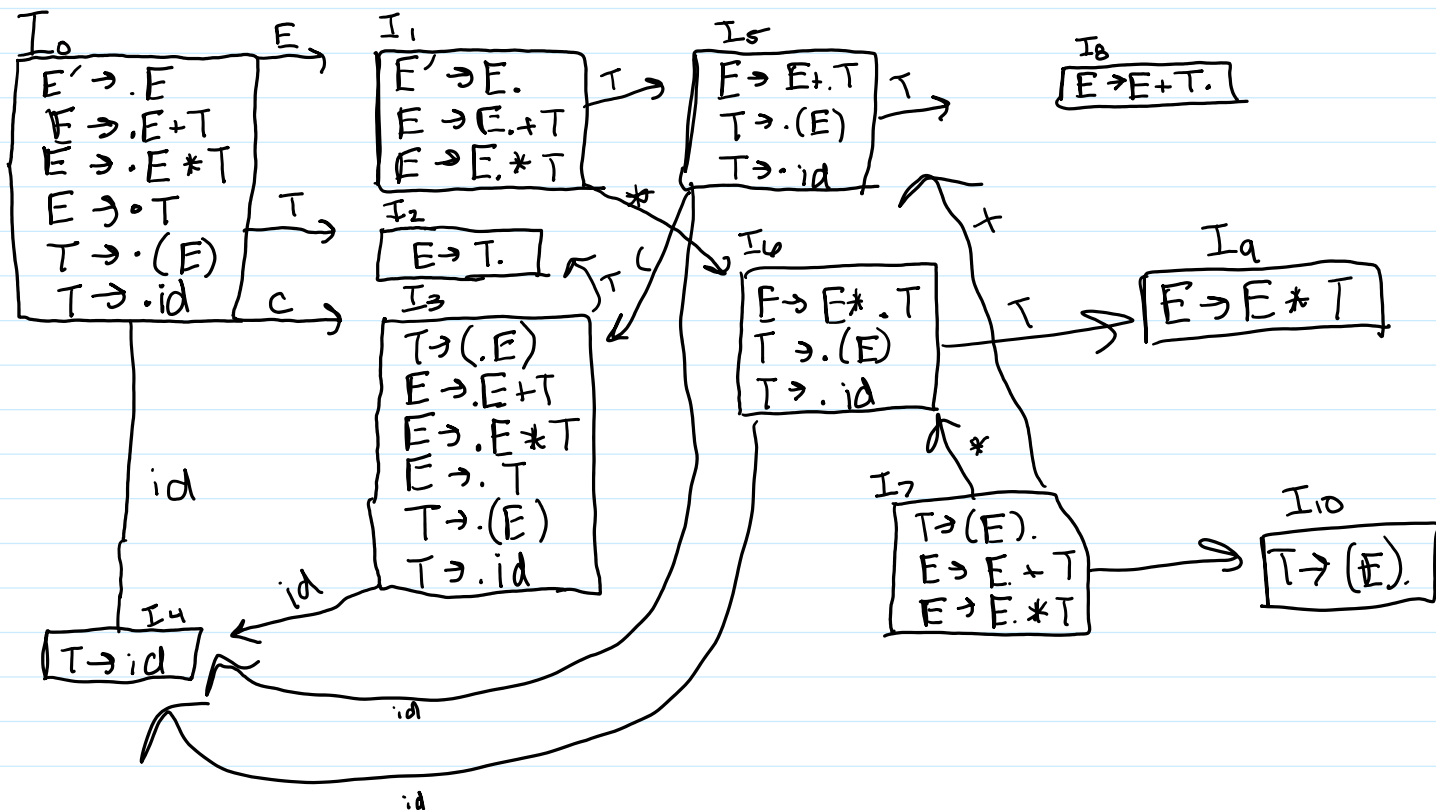 I0
E' → .E
E → .E+T
E → .E * T
E → .T
T → .(E)
T → .id
E
T
C
id
I1
E' → E.
E → E.+T
E → E.* T
T
*
I2
E → T.
T
I3
T → (.E)
E → .E+T
E → .E * T
E → .T
T → .(E)
T → .id
id
I4
T → id
id
id
I5
E → E+.T
T → .(E)
T → .id
T
C
I6
E → E*.T
T → .(E)
T → .id
T
I7
T → (E).
E → E.+T
E → E.*T
*
+
I8
E → E+T.
I9
E → E * T
I10
T → (E).